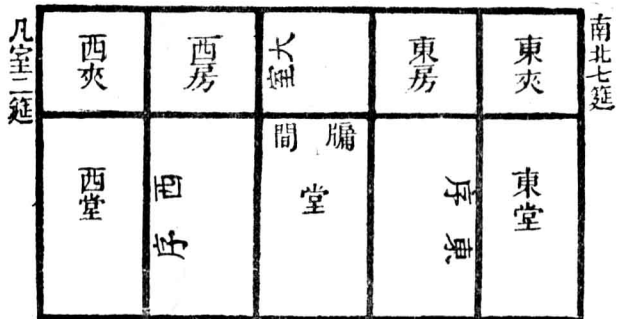 南北七筵
東夾
東房
大室
西房
西夾
凡室二筵
東堂
東序
牖間
堂
西序
西堂